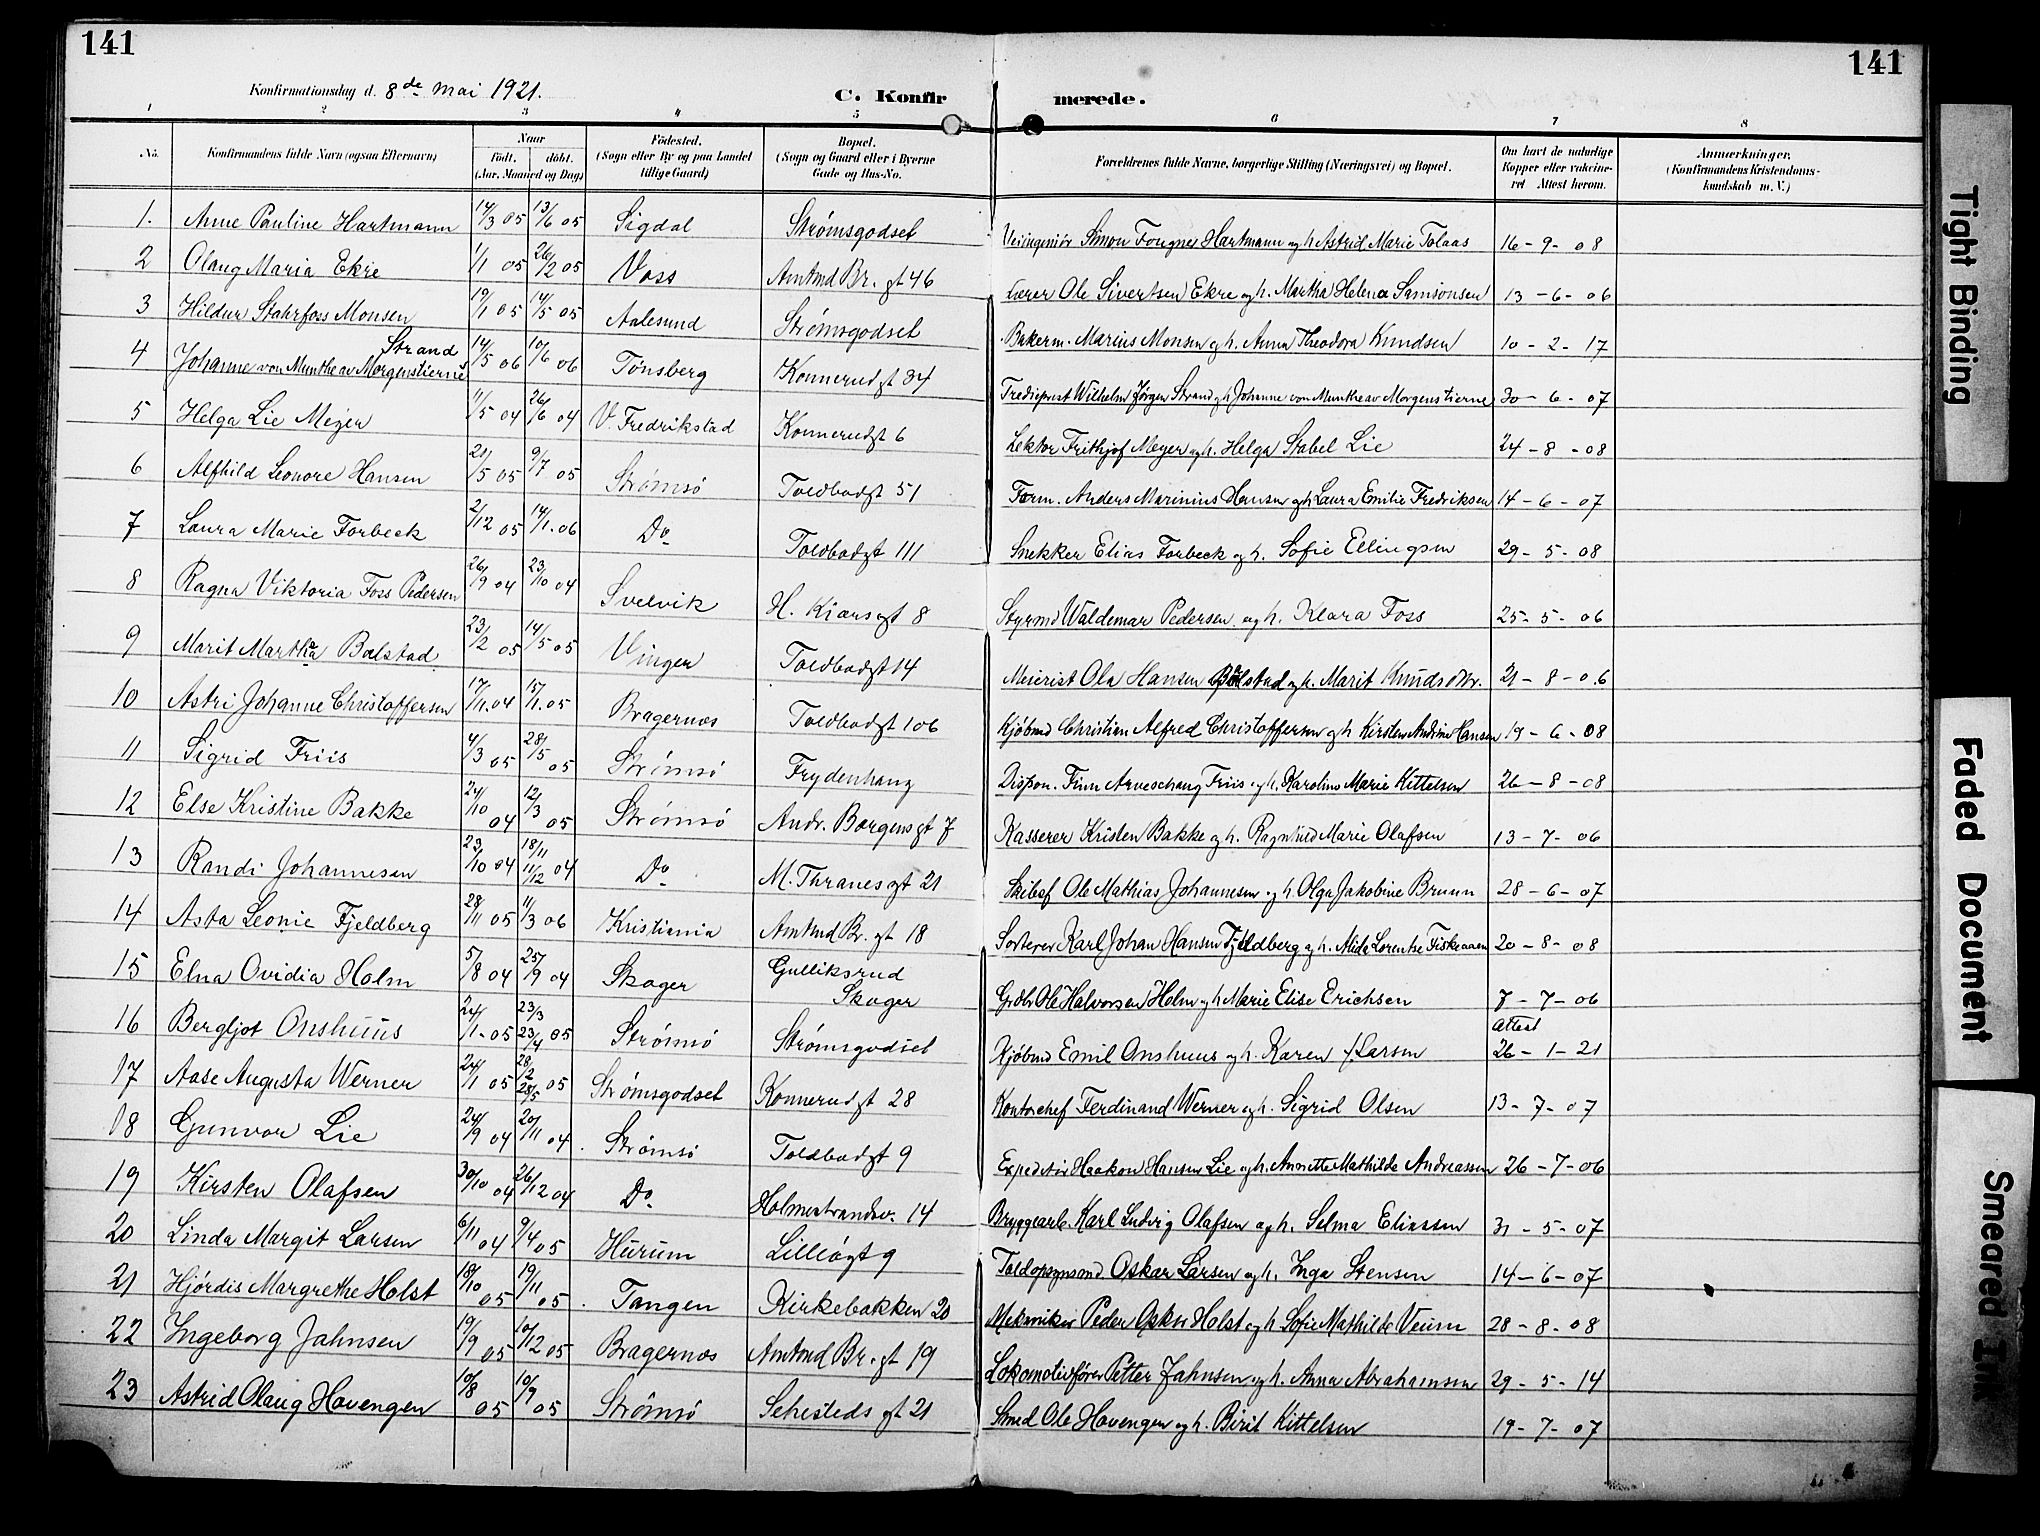 141
141
Konfirmationsdag d. 8de mai 1921.
C. Konfirmerede.
1 2 3 4 5 6 7 8
No. Konfirmandens fulde Navn (ogsaa Efternavn) Naar født. døbt. (Aar, Maaned og Dag) Födested. (Sogn eller By og paa Landet tillige Gaard) Bopæl. (Sogn og Gaard eller i Byerne Gade og Hus-No. Forældrenes fulde Navne, borgerlige Stilling (Næringsvei) og Bopæl. Om havt de naturlige Kopper eller vakcineret Attest herom. Anmerkninger, (Konfirmandens Kristendomskundskab m. V.)
1. Anne Pauline Hartmann 14/3 05 13/6 05 Sigdal Strømsgodset Veiingeniør Simon Fougner Hartmann og h. Astrid Marie Tolaas 16-9-08
2 Olaug Maria Ekre 1/1 05 26/2 05 Voss Amtmd Br. gt 46 Lærer Ole Sivertsen Ekre og h. Martha Helena Samsonsen 13-6-06
3 Hildur Stahrfoss Monsen 19/1 05 14/5 05 Aalesund Strømsgodset Bakerm. Marius Monsen og h. Anna Theodora Knudsen 10-2-17
4 Johanne von Munthe av Morgenstierne Strand 14/5 06 10/6 06 Tönsberg Konnerudgt 34 Trediepræst Wilhelm Jørgen Strand og h. Johanne von Munthe av Morgenstierne 30-6-07
5 Helga Lie Meyer 11/5 04 26/6 04 V. Fredrikstad Konnerudgt 6 Lektor Frithjof Meyer og h. Helga Stabel Lie 24-8-08
6 Alfhild Leonore Hansen 21/5 05 9/7 05 Strømsö Toldbodgt 51 Form. Anders Marinius Hansen og h. Laura Emilie Fredriksen 14-6-07
7 Laura Marie Forbeck 2/12 05 14/1.06 Do Toldbodgt 111 Snekker Elias Forbeck og h. Sofie Ellingsen 29-5-08
8 Ragna Viktoria Foss Pedersen 26/9 04 23/10 04 Svelvik H. Kiærs gt 8 Styrmd Waldemar Pedersen og h. Klara Foss 25-5-06
9 Marit Martha Bolstad 23/2 05 14/5 05 Vinger Toldbodgt 14 Meierist Ola Hansen Bolstad og h. Marit Knudsdtr. 21-8-06
10 Astri Johanne Christoffersen 17/11.04 15/1.05 Bragernæs Toldbodgt 106 Kjöbmd Christian Alfred Christoffersen og h. Kirsten Andrine Hansen 19-6-08
11 Sigrid Friis 4/3 05 28/5 05 Strømsö Frydenhaug Dispon. Finn Arveschaug Friis og h. Karoline Marie Kittelsen 26-8-08
12 Else Kristine Bakke 24/10 04 12/3 05 Strømsö Andr. Borgens gt 7 Kasserer Kristen Bakke og h. Ragnhild Marie Olafsen 13-7-06
13 Randi Johannesen 23/10 04 18/11 11/12 04 Do M. Thranes gt 21 Skibsf Ole Mathias Johannesen og h. Olga Jakobine Bruun 28-6-07
14 Asta Leonie Fjeldberg 28/11 05 11/3 06 Kristiania Amtmd Br. gt 18 Sorterer Karl Johan Hansen Fjeldberg og h. Alida Lorentse Fiskeaaen 20-8-08
15 Elna Ovidia Holm 5/8 04 25/9 04 Skoger Gulliksrud Skoger Grdbr Ole Halvorsen Holm og h. Marie Elise Erichsen 7-7-06
16 Bergljot Onshuus 24/1-05 23/3 23/4 05 Strømsö Strømsgodset Kjöbmd Emil Onshuus og h. Karen f. Larsen attest 26-1-21
17 Aase Augusta Werner 24/1 05 28/2 28/5 05 Strømsgodset Konnerudgt 28 Kontorchef Ferdinand Werner og h. Sigrid Olsen 13-7-07
18 Gunvor Lie 24/9 04 20/11 04 Strømsö Toldbodgt 9 Expeditör Haakon Hansen Lie og h. Annette Mathilde Andreassen 26-7-06
19 Kirsten Olafsen 30/10 04 26/12 04 Do Holmestrandsv. 14 Bryggearb. Karl Ludvig Olafsen og h. Selma Eliassen 31-5-07
20 Linda Margit Larsen 6/11 04 9/4 05 Hurum Lilleögt 9 Toldopsynsmd Oskar Larsen og h. Inga Stensen 14-6-07
21 Hjördis Margrethe Holst 18/10 05 19/11 05 Tangen Kirkebakken 20 Mekaniker Peder Oskar Holst og h. Sofie Mathilde Veum 28-8-08
22 Ingeborg Jahnsen 19/9 05 10/12 05 Bragernæs Amtmd Br. gt 19 Lokomotivförer Petter Jahnsen og h. Anna Abrahamsen 29-5-14
23 Astrid Olaug Hovengen 10/8 05 10/9 05 Strømsö Sehesteds gt 21 Smed Ole Hovengen og h. Birit Kittelsen 19-7-07
Tight Binding
Faded Document
Smeared Ink